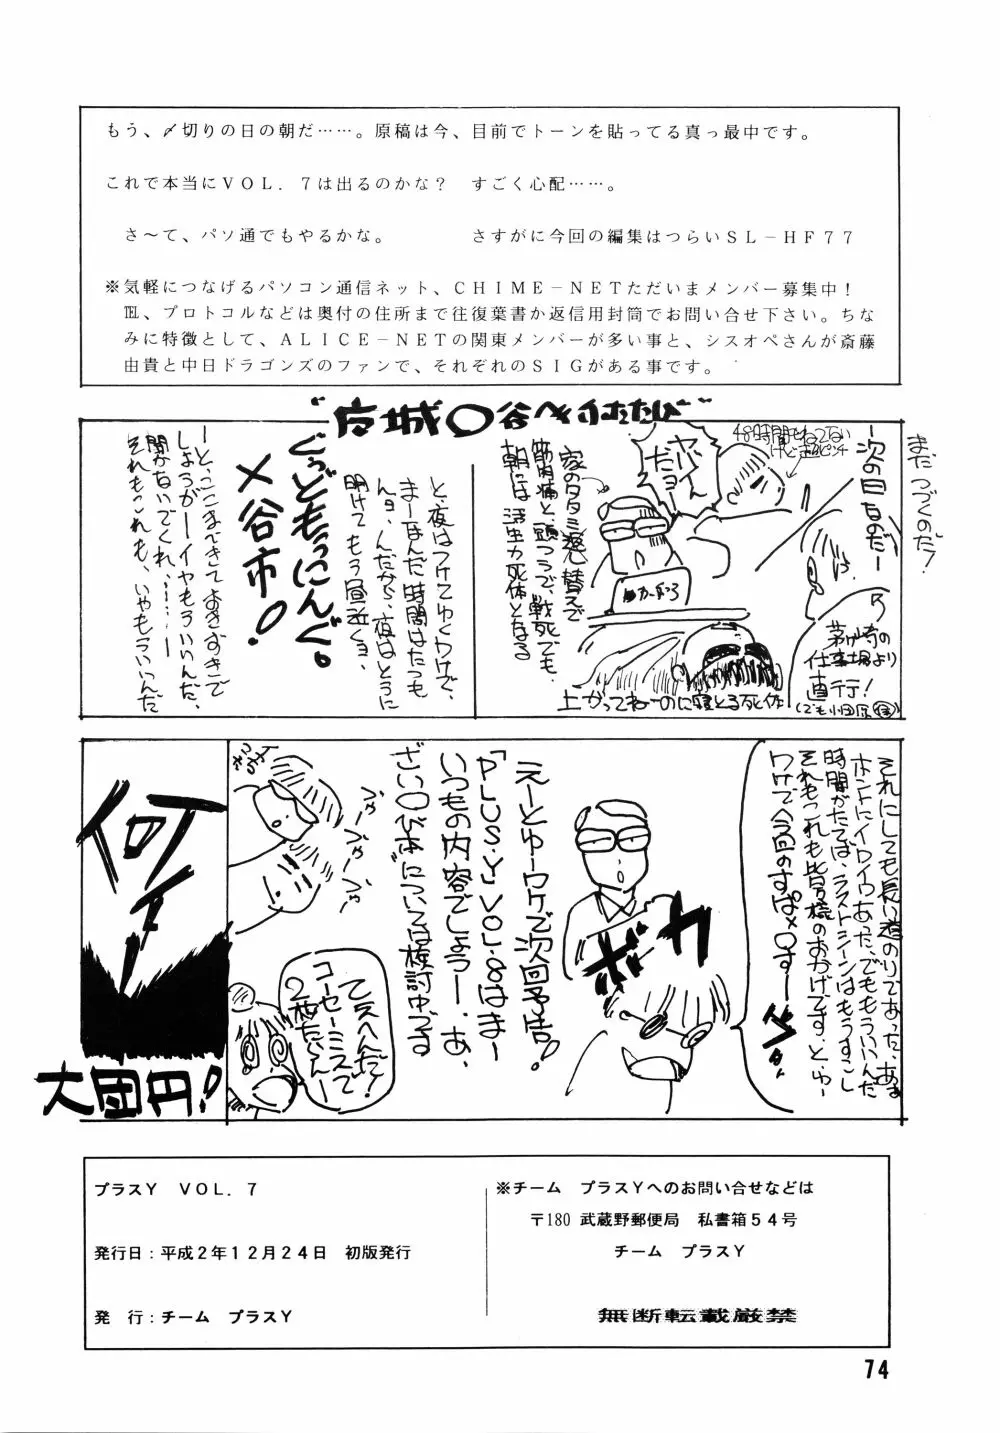 もう、〆切りの日の朝だ……。原稿は今、目前でトーンを貼ってる真っ最中です。
これで本当にＶＯＬ．７は出るのかな？　すごく心配……。
さ〜て、パソ通でもやるかな。　さすがに今回の編集はつらいＳＬ−ＨＦ７７
※気軽につなげるパソコン通信ネット、ＣＨＩＭＥ−ＮＥＴただいまメンバー募集中！
℡、プロトコルなどは奥付の住所まで往復葉書か返信用封筒でお問い合せ下さい。ちな
みに特徴として、ＡＬＩＣＥ−ＮＥＴの関東メンバーが多い事と、シスオペさんが斎藤
由貴と中日ドラゴンズのファンで、それぞれのＳＩＧがある事です。
まだつづくのだ！
ー次の日なのだー
48時間もねてない
茅ヶ崎の
仕事場より
直行！
家のタタミ返し替えで
筋肉痛と、頭つうで、戦死でも、
朝には活出力死体となる
上がってねーのに寝とる死体
と、夜はつけてゆくワケで、
まーほんだ時間はたつも
んョ、んだから、夜はとうに
明けてもう昼近くョ、
ぐっどもっにんぐ。
〆谷市！
ーと、ここまできておきすきで
しょうがーイヤもういいんだ、
聞かないでくれ……ー
それもこれも、いやもういいんだ
それにしても長い道のりであった、ああ
ホントにイロイロあった、でももういいんだ
時間がたてば、ラストシーンはもうすこし
それもこれも皆様のおかげです、とゆー
ワケで今回のすぱ〆〇すー
ボカ
えーとゆーワケで次回予告！
「ＰＬＵＳ・Ｙ」ＶＯＬ・８はまー
いつもの内容でしょうー、あ、
さい〇び本については検討中づる
乙女へんだ！
コーセーミスで
２枚たりんー
何ィー！
大団円！
プラスＹ　ＶＯＬ．７
発行日：平成２年１２月２４日　初版発行
発　行：チーム　プラスＹ
※チーム　プラスＹへのお問い合せなどは
〒180 武蔵野郵便局　私書箱５４号
チーム　プラスＹ
無断転載厳禁
74